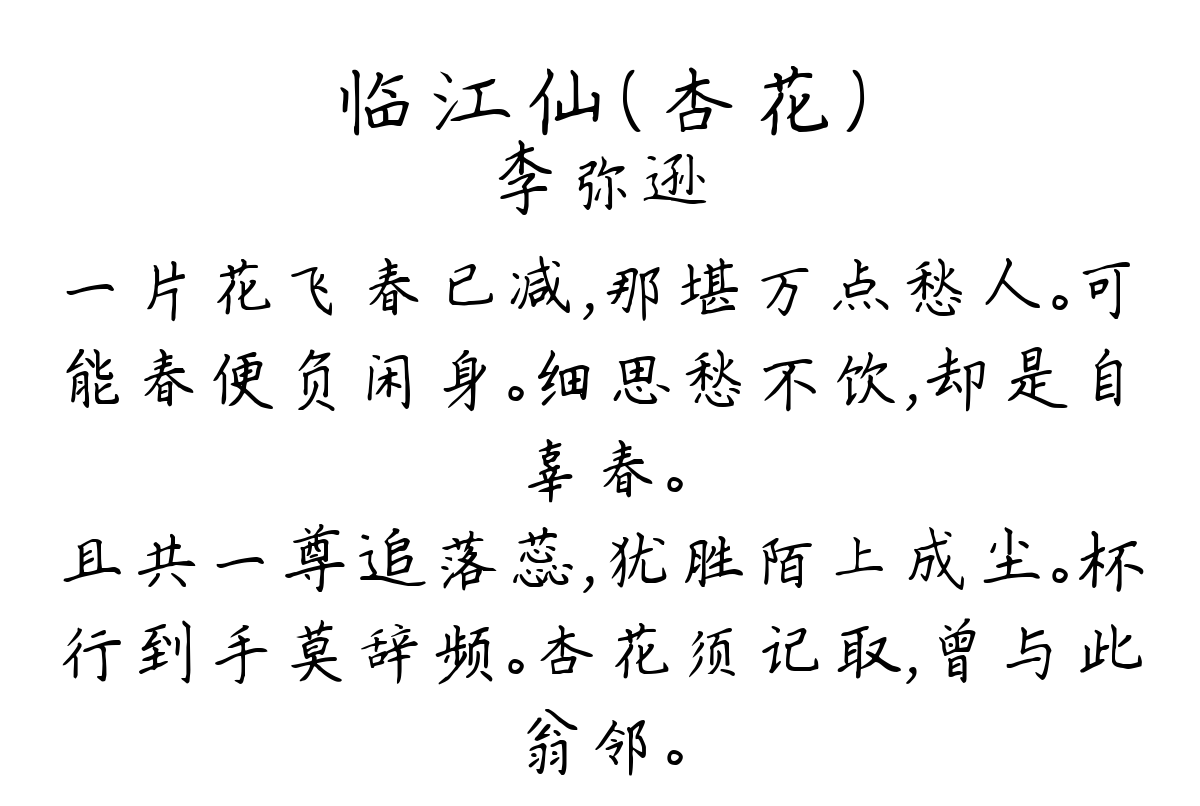 临江仙(杏花)
李弥逊
一片花飞春已减,那堪万点愁人。可
能春便负闲身。细思愁不饮,却是自
辜春。
且共一尊追落蕊,犹胜陌上成尘。杯
行到手莫辞频。杏花须记取,曾与此
翁邻。